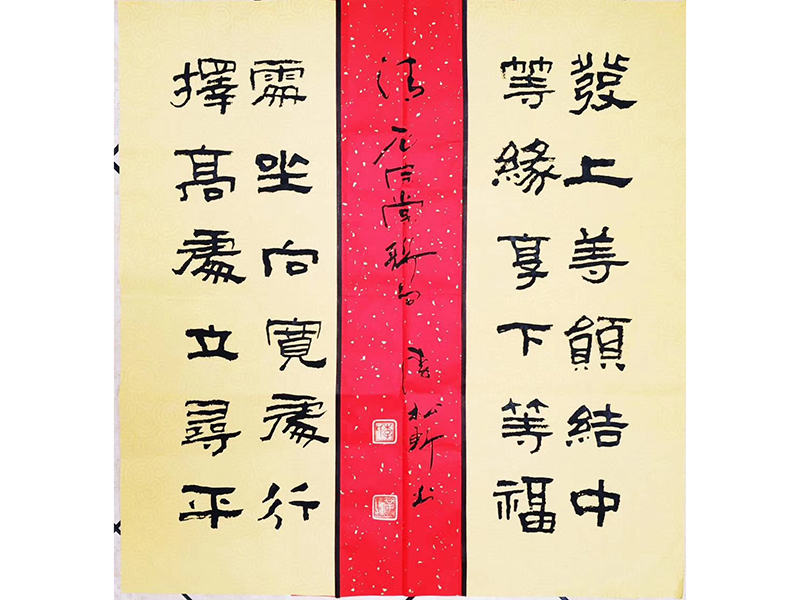 發上等願結中
等緣享下等福
擇高處立尋平
處坐向寬處行
清 左宗棠聯句
松軒書